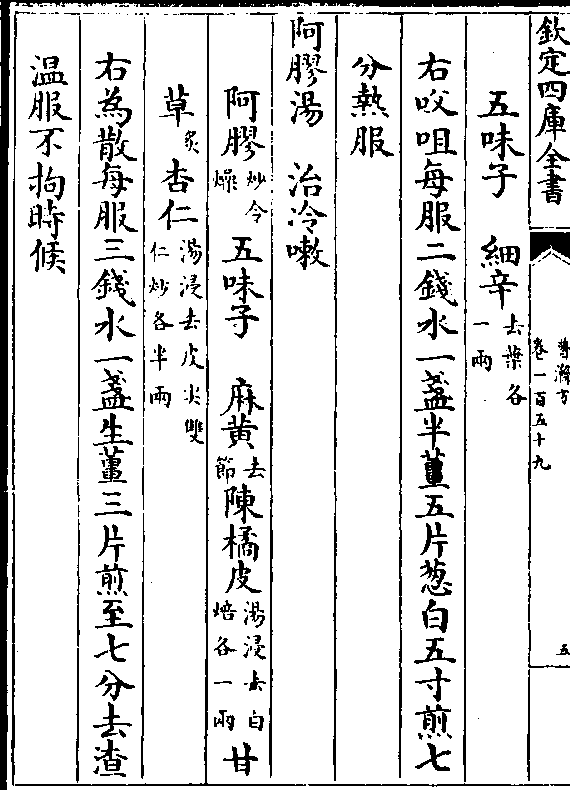 欽定四庫全書
普濟方
卷一百五十九
五
五味子　細辛去葉各一兩
右㕮咀每服二錢水一盞半薑五片葱白五寸煎七
分熱服
阿膠湯　治冷嗽
阿膠炒令燥　五味子　麻黄去節　陳橘皮湯浸去白焙各一兩　甘
草炙　杏仁湯浸去皮尖雙仁炒各半兩
右為散每服三錢水一盞生薑三片煎至七分去渣
温服不拘時候